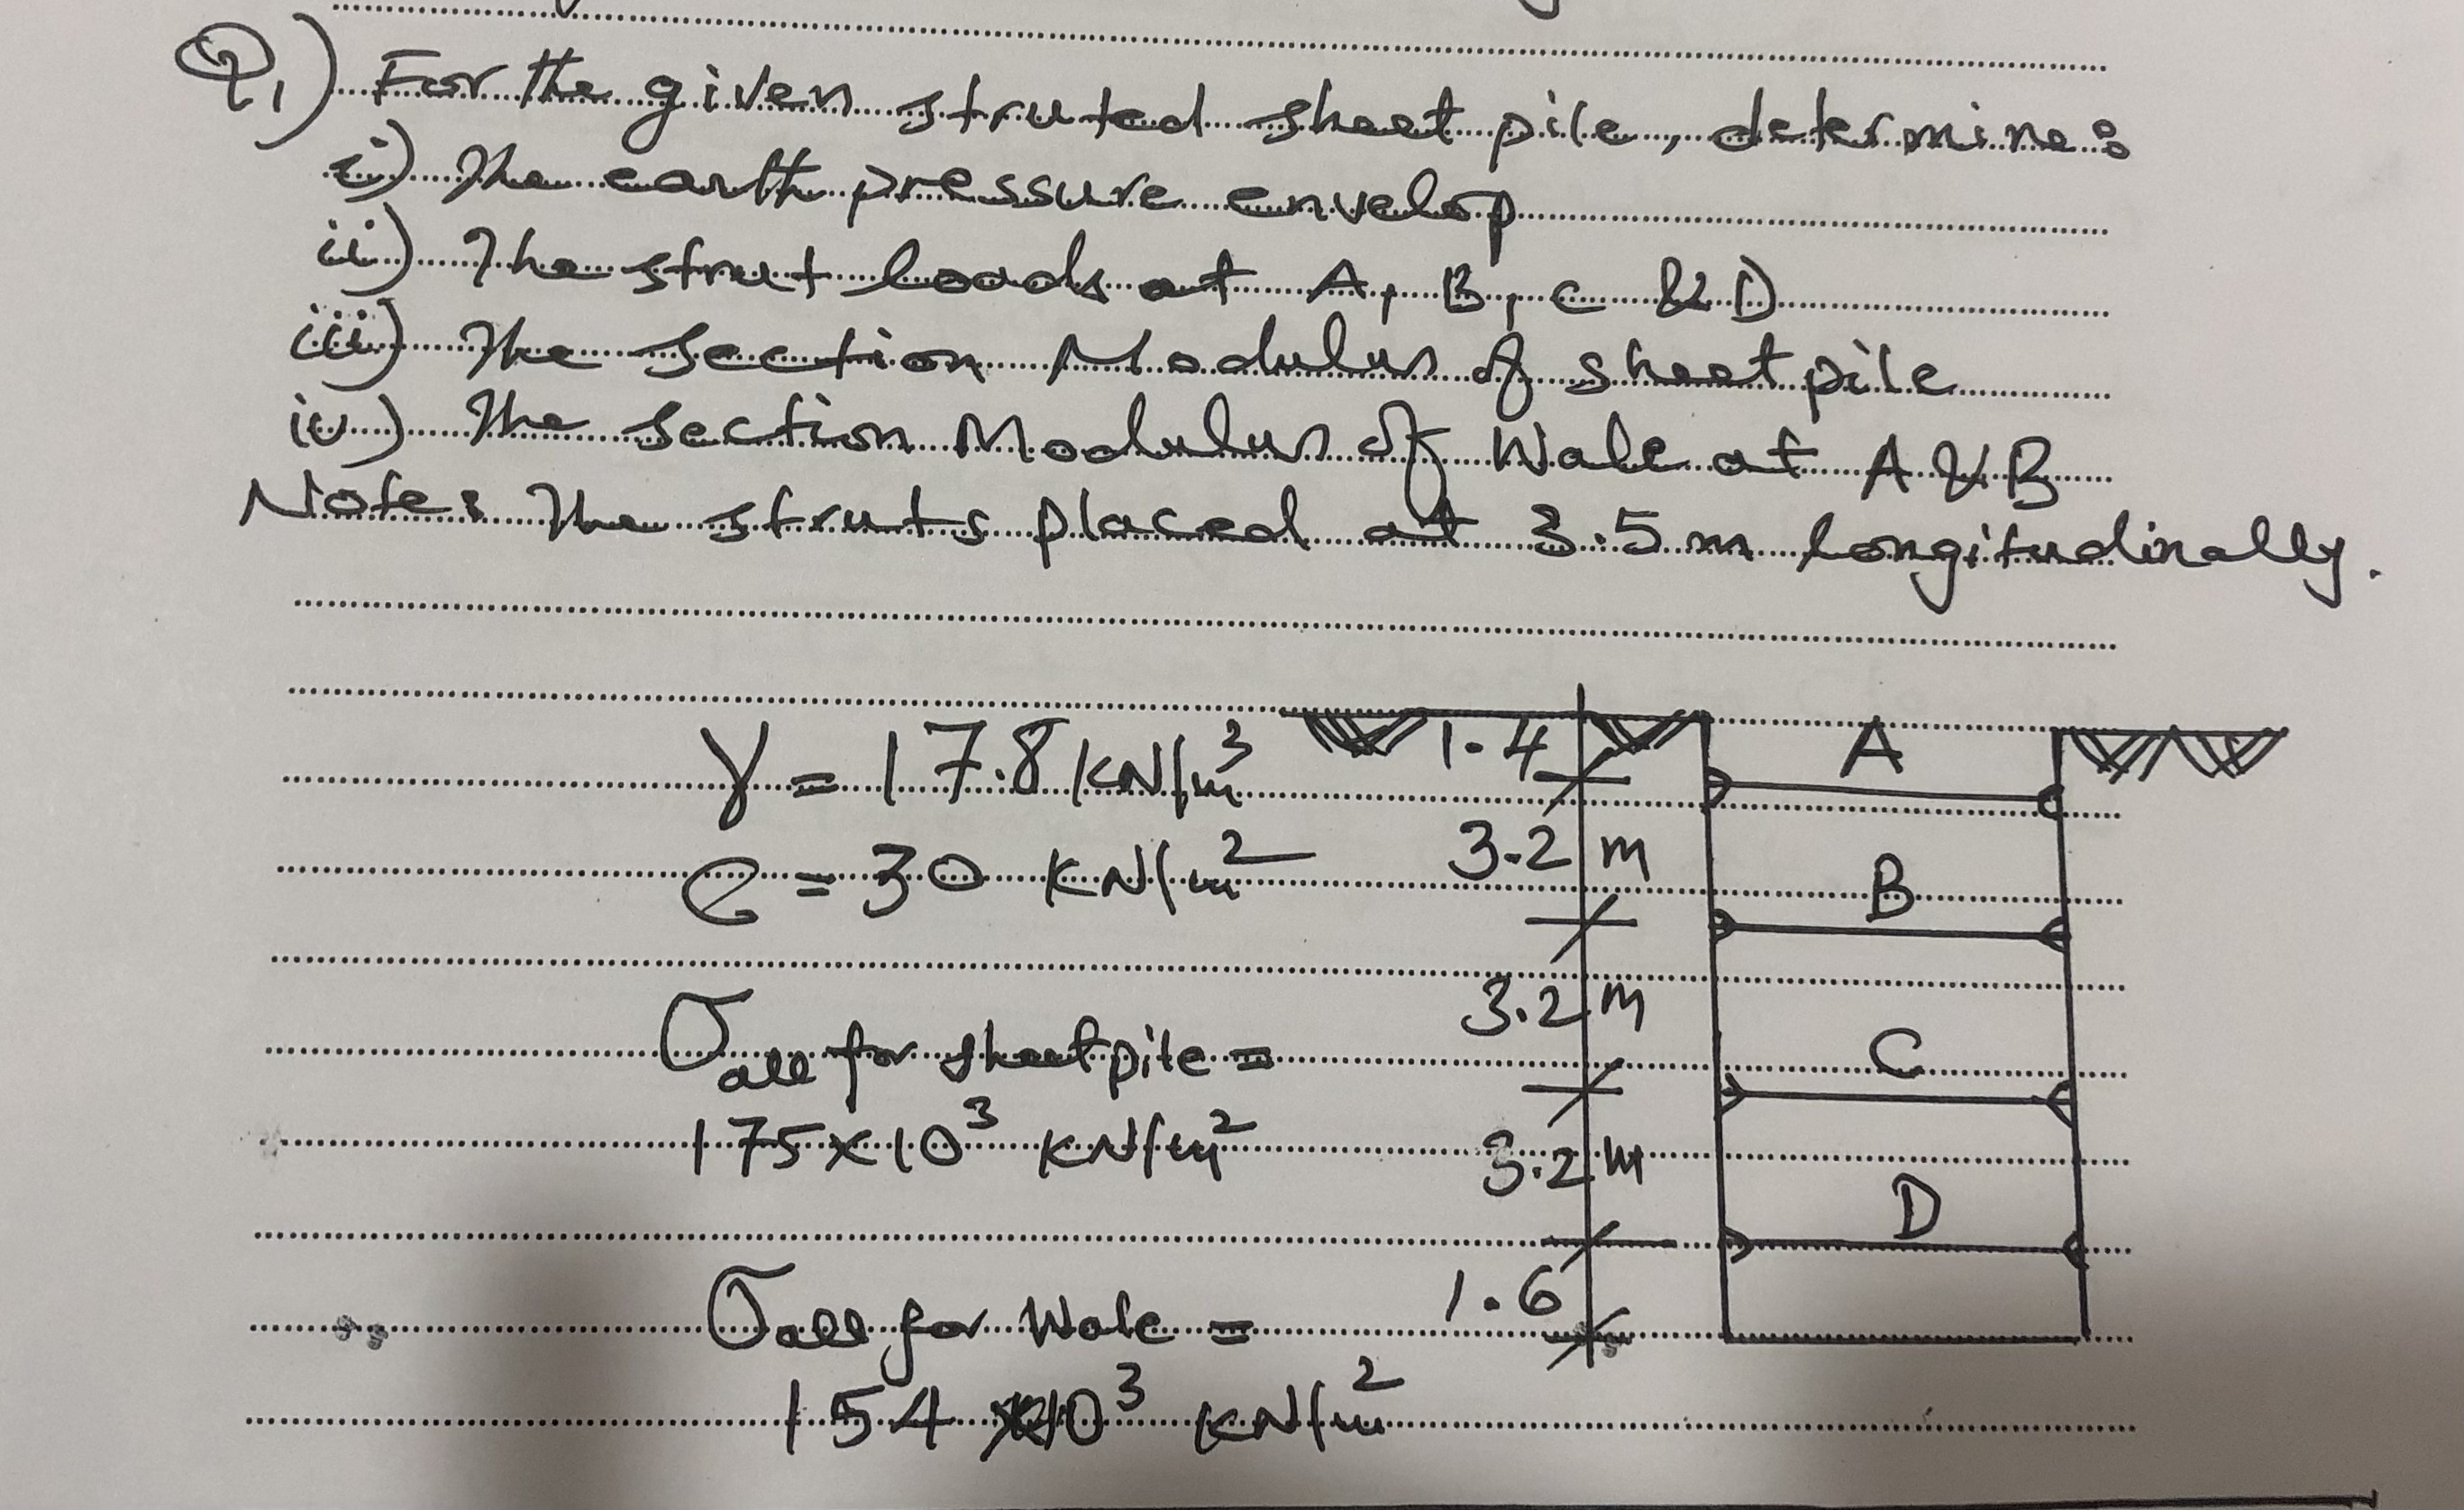 Q1) For the given struted sheet pile, determine:
i) The earth pressure envelop
ii) The strut loads at A, B, C & D
iii) The section Modulus of sheet pile
iv) The section Modulus of Wale at A & B
Note: The struts placed at 3.5 m longitudinally.
γ = 17.8 KN/m³
1.4
A
C = 30 KN/m²
3.2 m
B
σall for sheet pile =
3.2 m
C
175×10³ KN/m²
3.2 m
D
σall for Wale =
1.6
154 ×10³ KN/m²